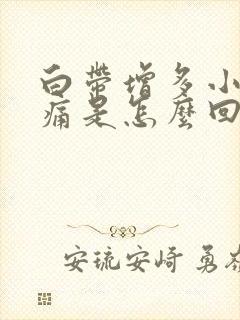 白帶增多小
痛是怎麼回
安琉安崎 勇